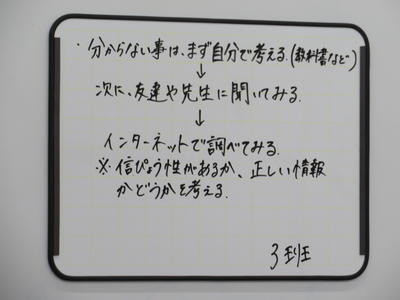 ・分からない事は、まず自分で考える。(教科書など)
↓
次に、友達や先生に聞いてみる。
↓
インターネットで調べてみる。
※信ぴょう性があるか、正しい情報
かどうかを考える。
3班